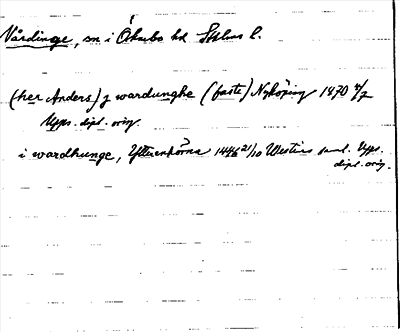 Vårdinge, sn i Öknebo hd Sthlms l.
(her Anders) j wardunghe (faste) Nyköping 1470 4/7
Upps. dipl. orig.
i wardhunge, 1446 21/10 Westins saml. Upps.
dipl. orig.